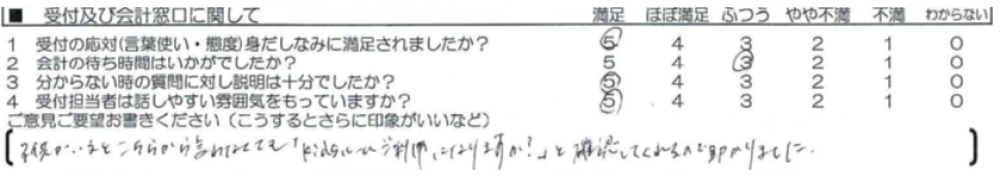 ■ 受付及び会計窓口に関して 満足 ほぼ満足 ふつう やや不満 不満 わからない
1 受付の応対(言葉使い・態度)身だしなみに満足されましたか? 5 4 3 2 1 0
2 会計の待ち時間はいかがでしたか? 5 4 3 2 1 0
3 分からない時の質問に対し説明は十分でしたか? 5 4 3 2 1 0
4 受付担当者は話しやすい雰囲気をもっていますか? 5 4 3 2 1 0
ご意見ご要望お書きください(こうするとさらに印象がいいなど)
子供がいるとこちらから言わなくても「Kidsルーム利用になりますか?」と確認してくれるので助かりました.